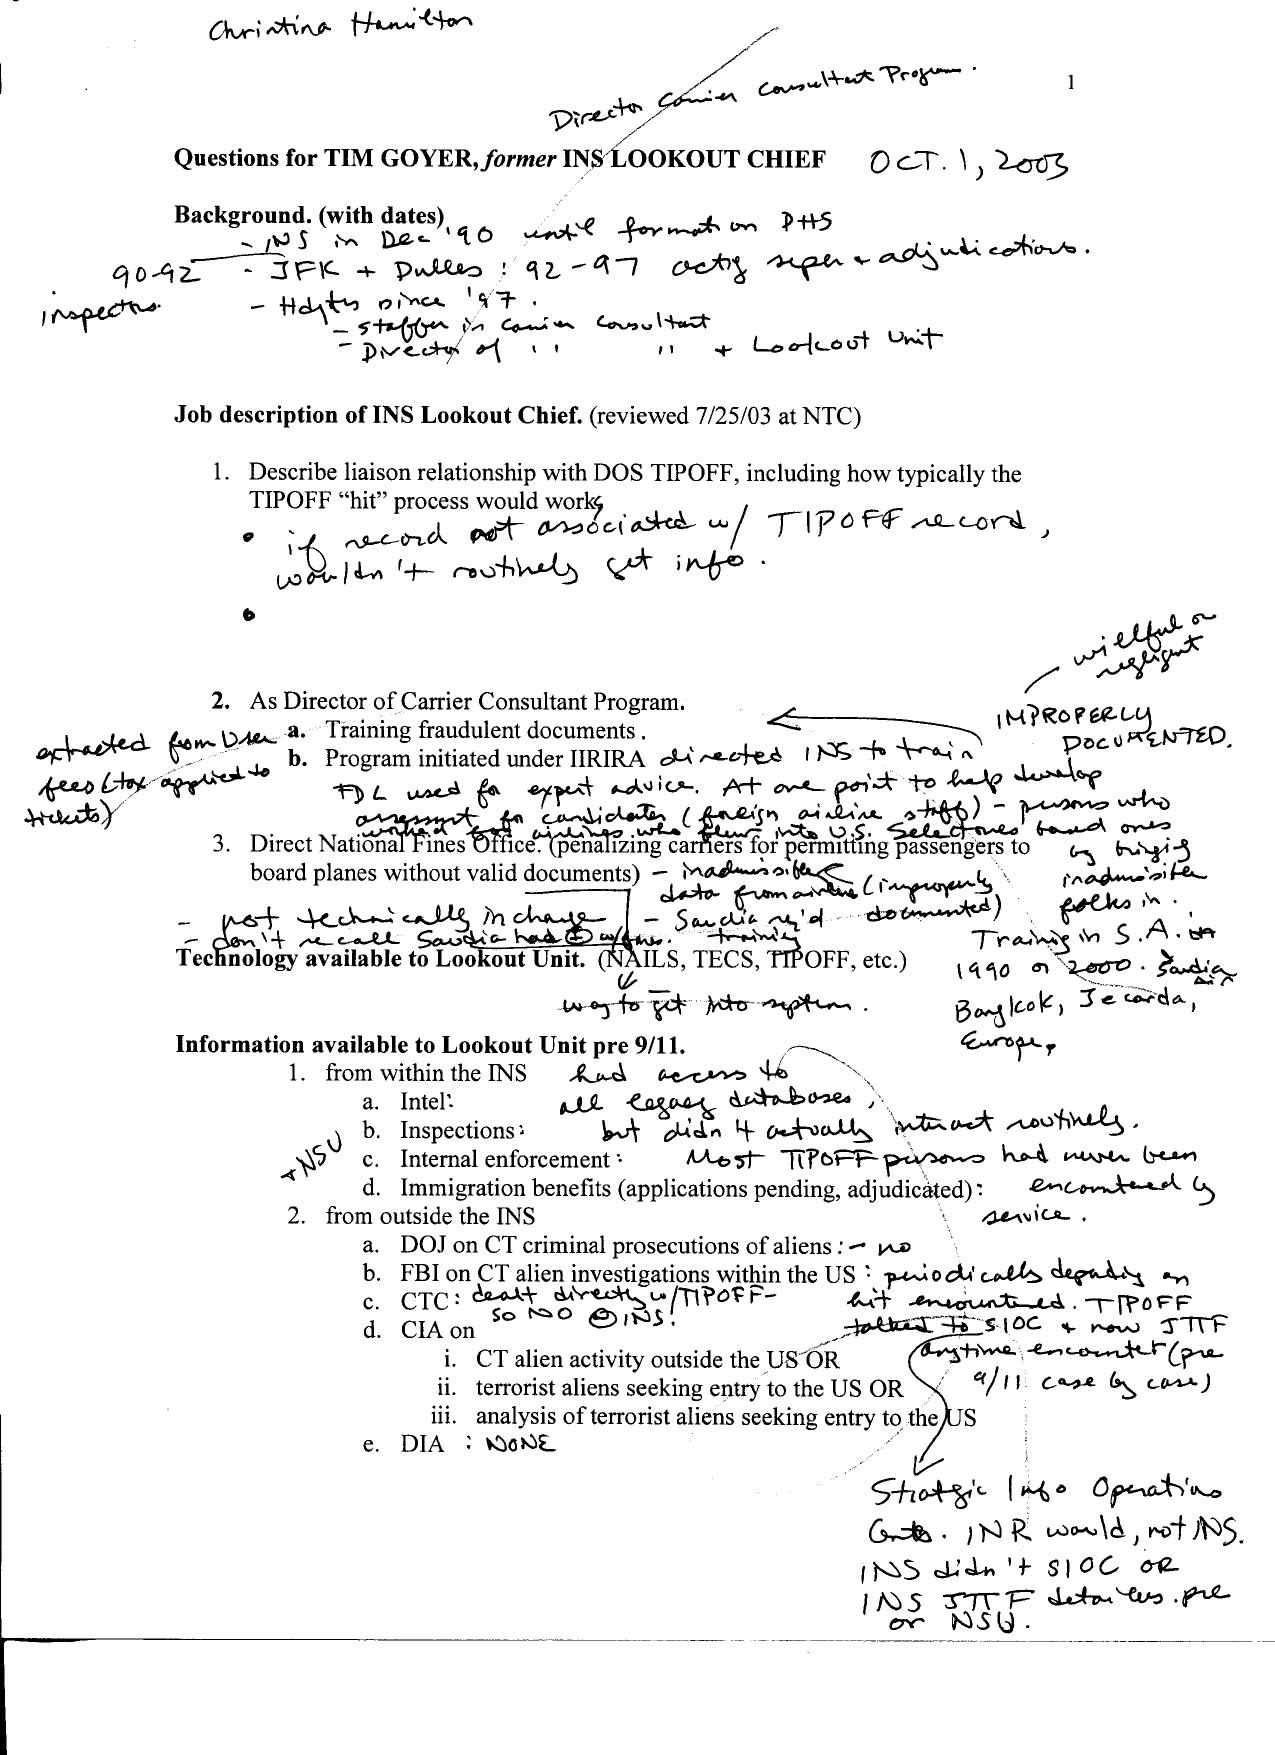 Christina Hamilton
Director Carrier Consultant Program.
1
Questions for TIM GOYER, former INS LOOKOUT CHIEF OCT. 1, 2003
Background. (with dates)
- INS in Dec '90 until formation DHS
90-92 - JFK + Dulles : 92-97 actg super + adjudications.
inspector.
- Hdqtrs since '97.
- staffer in carrier consultant
- Director of " " + Lookout Unit
Job description of INS Lookout Chief. (reviewed 7/25/03 at NTC)
1. Describe liaison relationship with DOS TIPOFF, including how typically the
TIPOFF “hit” process would work,
• if record not associated w/ TIPOFF record,
wouldn't routinely get info.
•
willful or
negligent
2. As Director of Carrier Consultant Program.
IMPROPERLY
DOCUMENTED.
a. Training fraudulent documents.
extracted from User
fees (tax applied to
tickets)
b. Program initiated under IIRIRA directed INS to train
FDL used for expert advice. At one point to help develop
assessment for candidates (foreign airline staff) - persons who
worked for airlines who flew into U.S. Selected ones based ones
3. Direct National Fines Office. (penalizing carriers for permitting passengers to
board planes without valid documents) - inadmissible
by bringing
inadmissible
folks in.
data from airline (improperly
documented)
- not technically in charge
- Saudia req'd
training
- don't recall Saudia had w/
Training in S.A. in
1990 or 2000. Saudia
Air
Bangkok,
Europe,
Technology available to Lookout Unit. (NAILS, TECS, TIPOFF, etc.)
way to get into system.
Information available to Lookout Unit pre 9/11.
1. from within the INS had access to
a. Intel: all legacy databases,
b. Inspections: but didn't actually interact routinely.
+NSU
c. Internal enforcement: Most TIPOFF persons had never been
d. Immigration benefits (applications pending, adjudicated): encountered by
service.
2. from outside the INS
a. DOJ on CT criminal prosecutions of aliens: - no
b. FBI on CT alien investigations within the US: periodically depending on
c. CTC: dealt directly w/TIPOFF- hit encountered. TIPOFF
so NO INS!
d. CIA on talked to SIOC + now JTTF
i. CT alien activity outside the US OR
(anytime encounter (pre
9/11 case by case)
ii. terrorist aliens seeking entry to the US OR
iii. analysis of terrorist aliens seeking entry to the US
e. DIA : NONE
Strategic Info Operations
Center. INR would, not INS.
INS didn't SIOC OR
INS JTTF detailees. pre
or NSU.